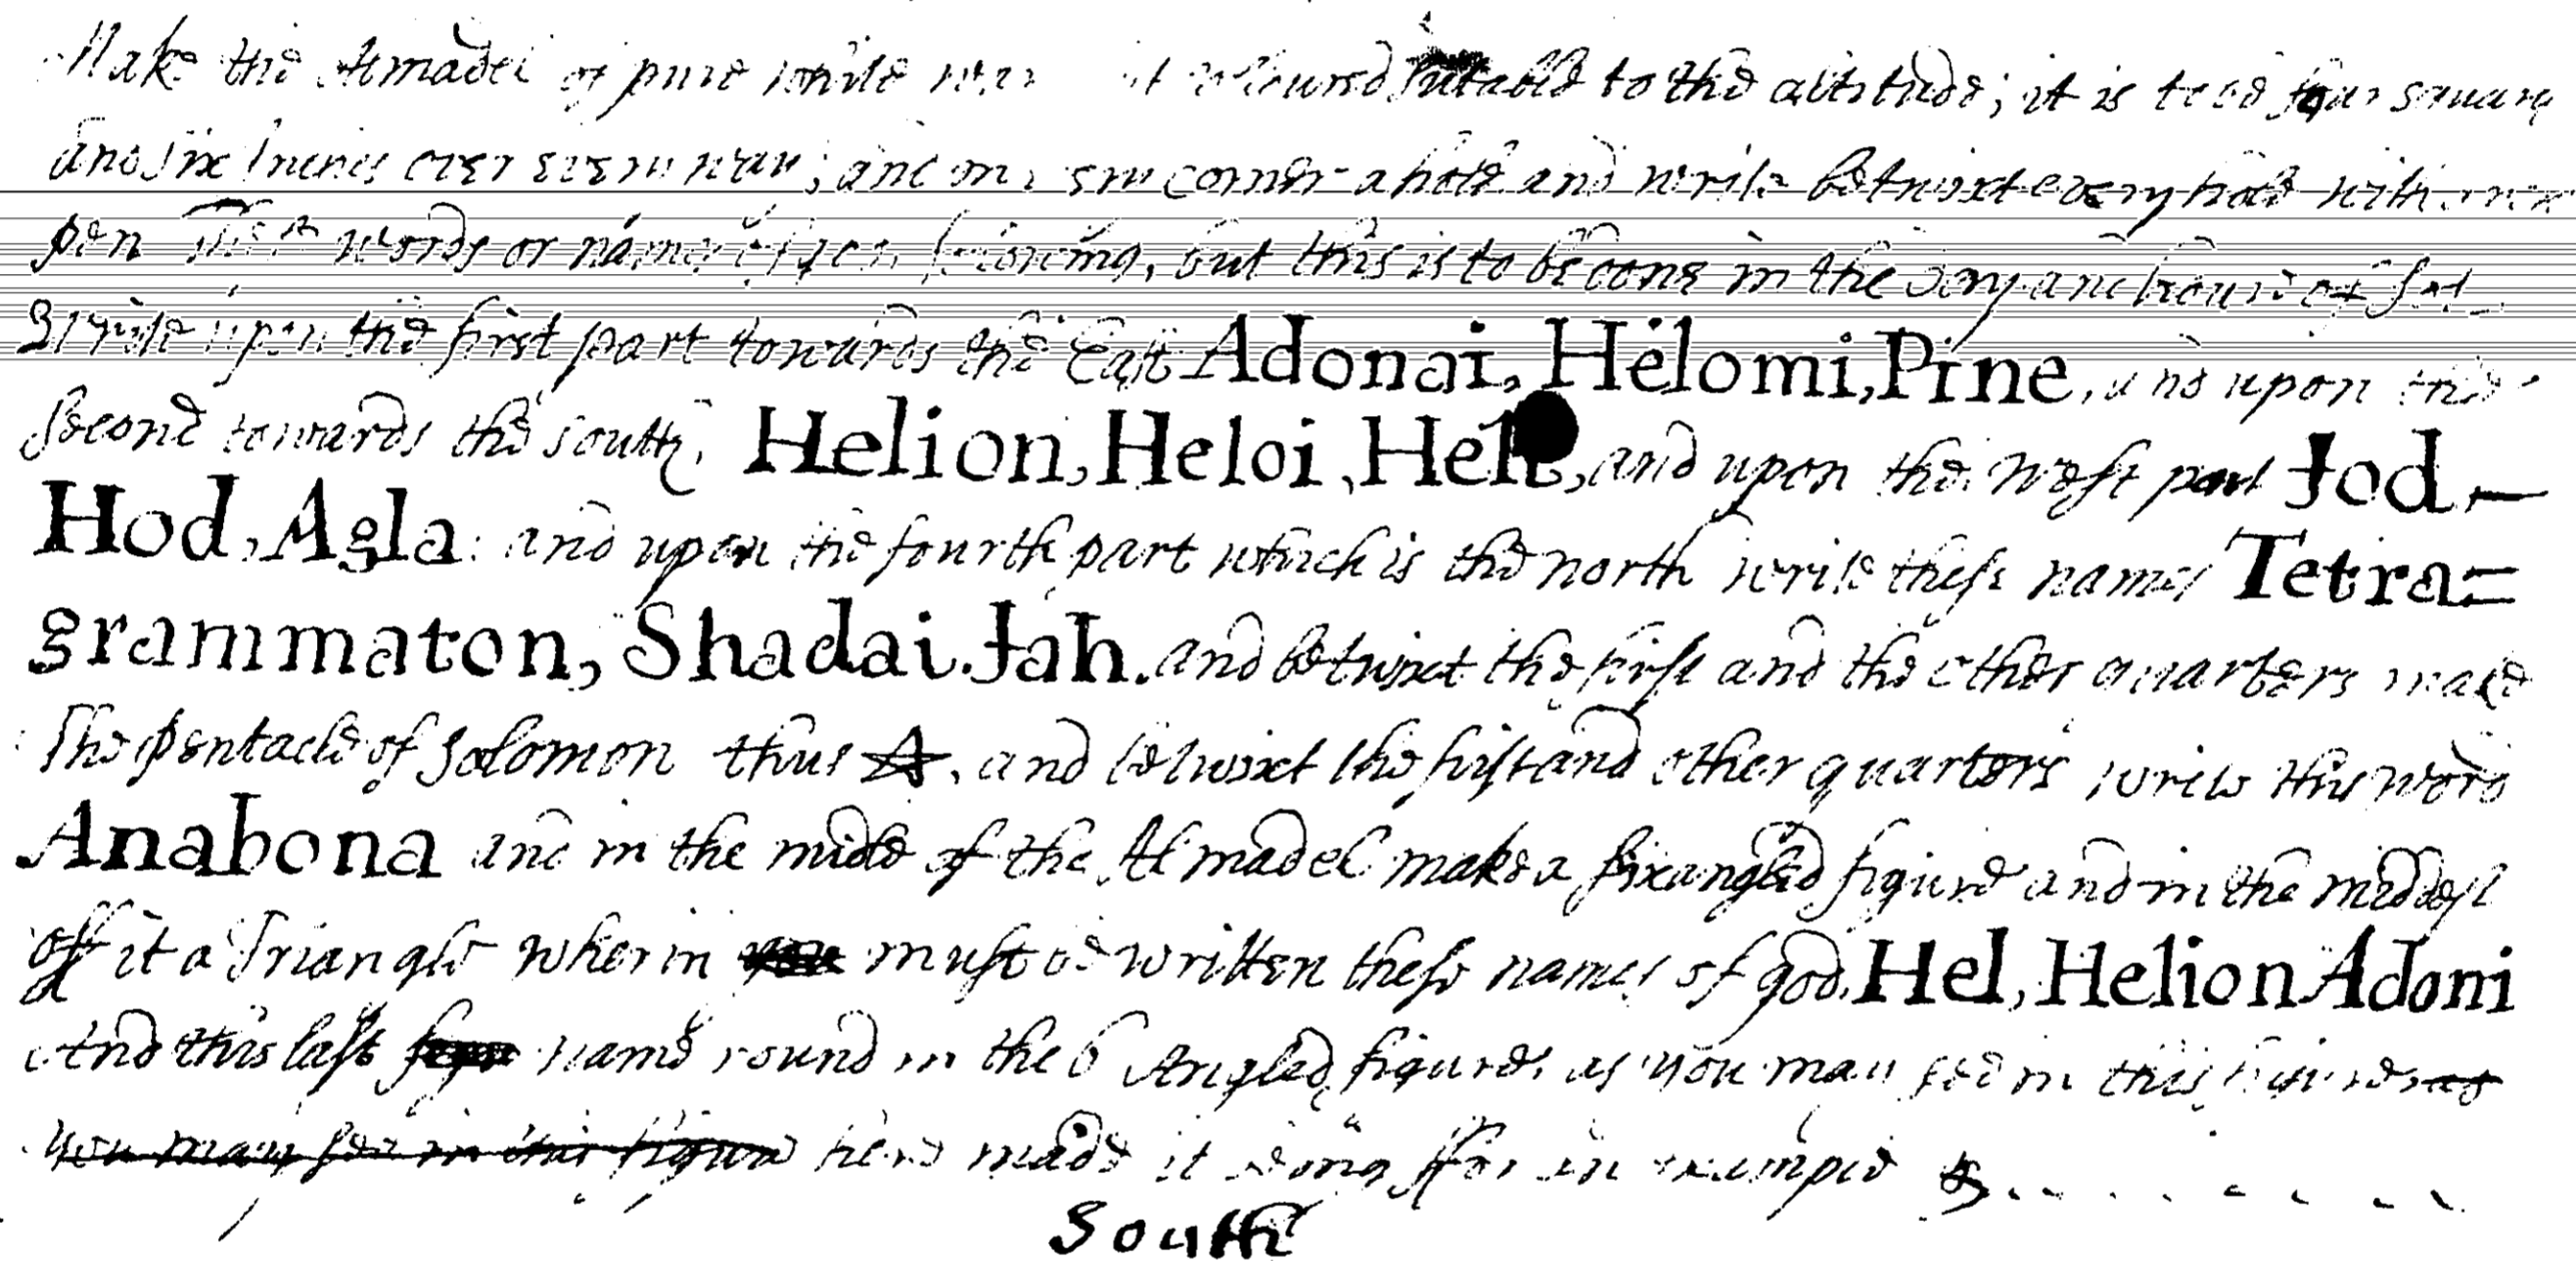 Make the Almadel of pure white wax coloured sutable to the altitude; it is to be four square
and six Inches over every way; and on every corner a hole and write betwixt every hole with a new
pen these words or names of god following, but this is to be done in the day and hour of Sol
write upon the first part towards the East Adonai, Helomi, Pine, and upon the
second towards the south, Helion, Heloi, Heli, and upon the west part Jod-
Hod, Agla: and upon the fourth part which is the north write these names Tetra=
grammaton, Shadai. Jah. and betwixt the first and the other quarters make
The Pentacle of Solomon thus ⛤, and betwixt the first and other quarters write this word
Anabona and in the midle of the Almadel make a sixangled figure and in the middest
off it a Triangle wherin must be written these names of god, Hel, Helion Adoni
And this last name round in the 6 Angled figure, as you may see in this figure as
you may see in this figure here made it being ffor an example
South